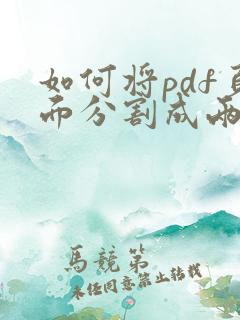 如何将pdf页
面分割成两
馬競第
未经同意禁止转载